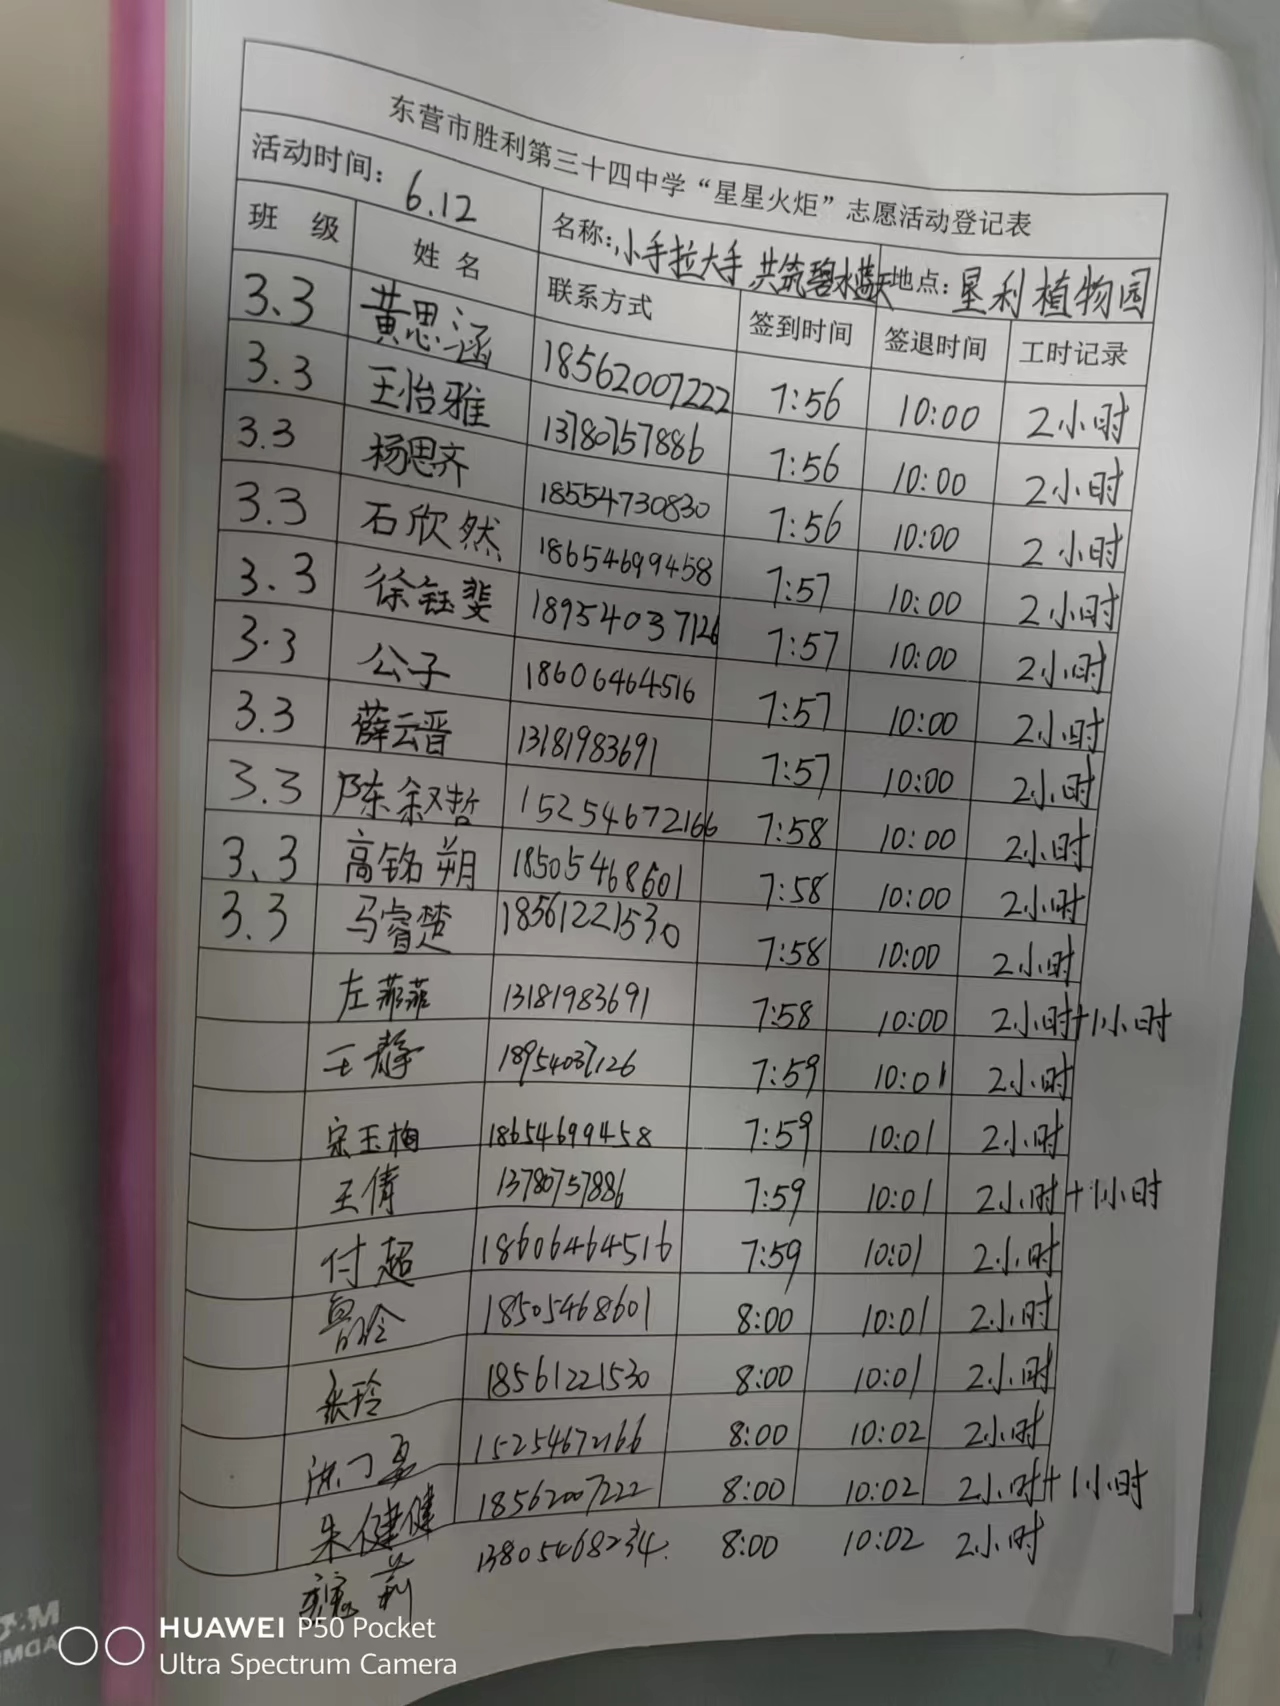 东营市胜利第三十四中学“星星火炬”志愿活动登记表
活动时间: 6.12 名称: 小手拉大手,共筑碧水蓝天 地点: 垦利植物园
班 级 姓 名 联系方式 签到时间 签退时间 工时记录
3.3 黄思涵 18562007222 7:56 10:00 2小时
3.3 王怡雅 13780757886 7:56 10:00 2小时
3.3 杨思齐 18554730830 7:56 10:00 2小时
3.3 石欣然 18654699458 7:57 10:00 2小时
3.3 徐钰斐 18954037126 7:57 10:00 2小时
3.3 公子 18606464516 7:57 10:00 2小时
3.3 薛云晋 13181983691 7:57 10:00 2小时
3.3 陈叙哲 15254672166 7:58 10:00 2小时
3.3 高铭朔 18505468601 7:58 10:00 2小时
3.3 马睿楚 18561221530 7:58 10:00 2小时
左菲菲 13181983691 7:58 10:00 2小时+1小时
王静 18954037126 7:59 10:01 2小时
宋玉梅 18654699458 7:59 10:01 2小时
王倩 13780757886 7:59 10:01 2小时+1小时
付超 18606464516 7:59 10:01 2小时
鲁冷 18505468601 8:00 10:01 2小时
张玲 18561221530 8:00 10:01 2小时
15254672166 8:00 10:02 2小时
朱健健 18562007222 8:00 10:02 2小时+1小时
莉 13805468234 8:00 10:02 2小时
HUAWEI P50 Pocket
Ultra Spectrum Camera